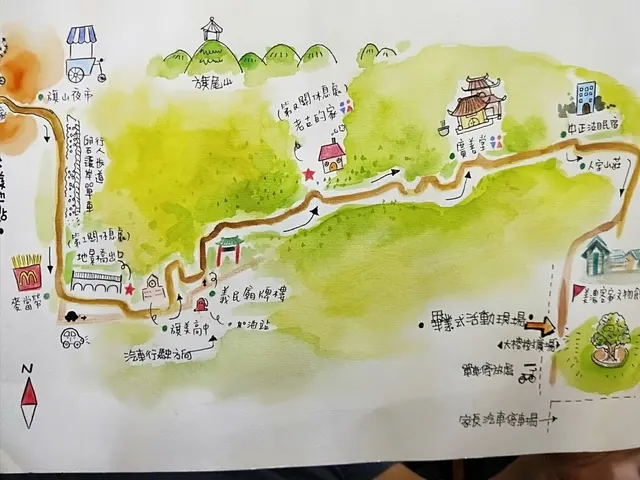 旗山夜市
旗尾山
(第2間休息處)
老古的家
廣善堂
中正湖民宿
人字山莊
卵石護岸單車
行人步道
(第1間休息處)
地景橋出口
麥當勞
義民廟牌樓
旗美高中
加油站
汽車行駛方向
美濃客家文物館
畢業式活動現場
N
家長汽車停車場